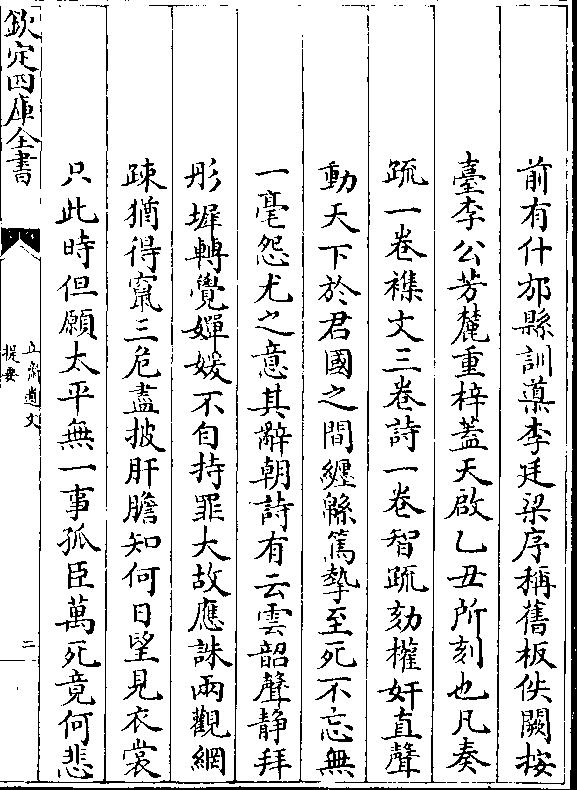 前有什邡縣訓導李廷梁序稱舊板佚闕按
臺李公芳麓重梓蓋天啟乙丑所刻也凡奏
疏一卷襍文三卷詩一卷智疏劾權奸直聲
動天下於君國之間纏綿篤摯至死不忘無
一毫怨尤之意其辭朝詩有云雲韶聲静拜
彤墀轉覺嬋媛不自持罪大故應誅兩觀網
疎猶得竄三危盡披肝膽知何日望見衣裳
只此時但願太平無一事孤臣萬死竟何悲
欽定四庫全書
立齋遺文
提要
二